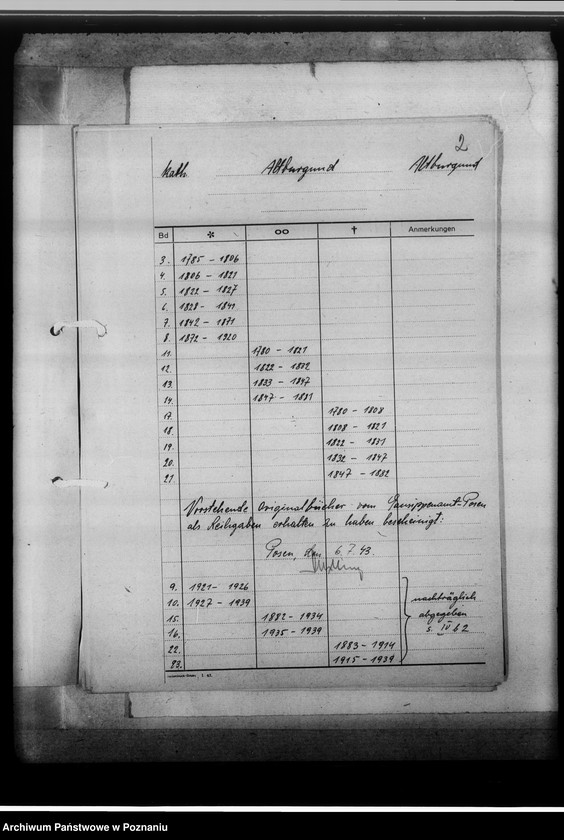 2
Kath. Altburgund Altburgund
Bd * oo † Anmerkungen
3. 1785 - 1806
4. 1806 - 1821
5. 1822 - 1827
6. 1828 - 1841
7. 1842 - 1871
8. 1872 - 1920
11. 1780 - 1821
12. 1822 - 1832
13. 1833 - 1847
14. 1847 - 1881
17. 1780 - 1808
18. 1808 - 1821
19. 1822 - 1831
20. 1832 - 1847
21. 1847 - 1882
Vorstehende Originalbücher vom Gausippenamt-Posen
als Leihgaben erhalten zu haben bescheinigt:
Posen, den 6.7.43.
9. 1921 - 1926
10. 1927 - 1939 nachträglich
15. 1882 - 1934 abgegeben
16. 1935 - 1939 s. IV 62
22. 1883 - 1914
23. 1915 - 1939
Archiwum Państwowe w Poznaniu